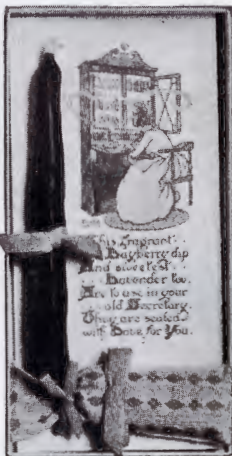 This fragrant
Bayberry dip
And sweetest
Lavender too,
Are to use in your
old Secretary.
They are sealed
with Love for You.